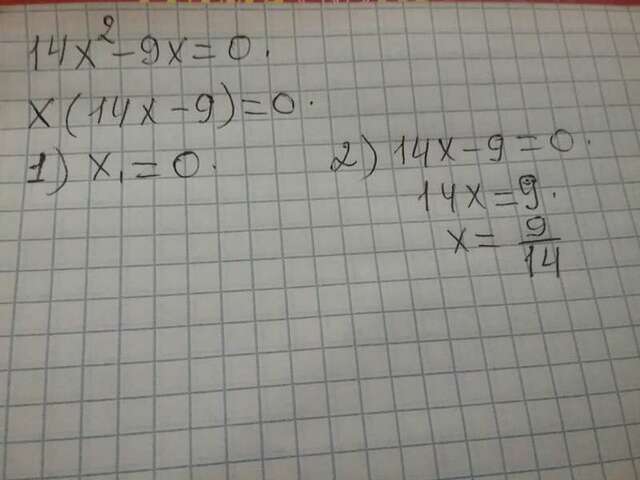 14x² - 9x = 0.
x(14x - 9) = 0.
1) x₁ = 0.
2) 14x - 9 = 0.
14x = 9.
x = 9/14